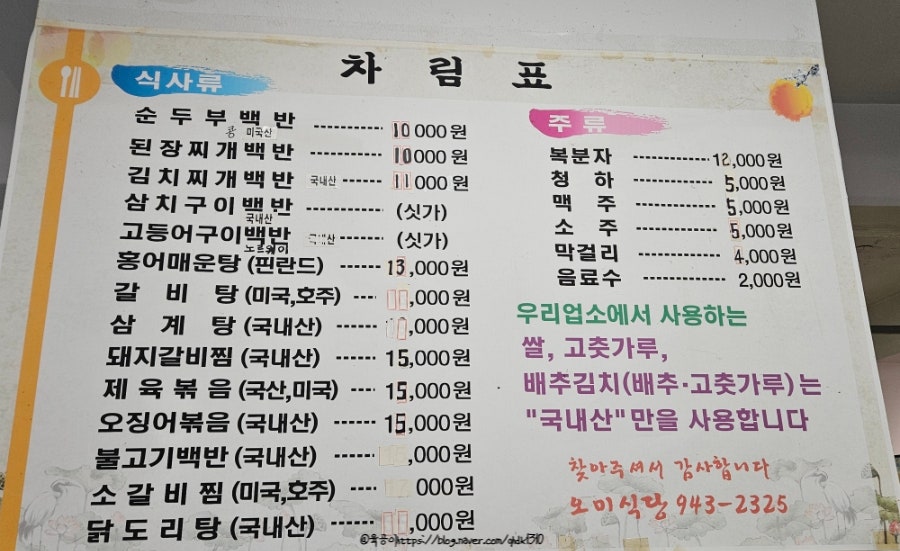 차림표
식사류
순두부백반 ---------- 10000원
콩 미국산
된장찌개백반 ---------- 10000원
김치찌개백반 국내산 ---- 11000원
삼치구이백반 ---------- (싯가)
국내산
고등어구이백반 국내산 (싯가)
노르웨이
홍어매운탕 (핀란드) ----- 13,000원
갈비탕 (미국,호주) --- ,000원
삼계탕 (국내산) ----- ,000원
돼지갈비찜 (국내산) ----- 15,000원
제육볶음 (국산,미국) --- 15,000원
오징어볶음 (국내산) ----- 15,000원
불고기백반 (국내산) ----- ,000원
소갈비찜 (미국,호주) --- 000원
닭도리탕 (국내산) ----- ,000원
주류
복분자 ---------- 12,000원
청하 ---------- 5,000원
맥주 ---------- 5,000원
소주 ---------- 5,000원
막걸리 ---------- 4,000원
음료수 ---------- 2,000원
우리업소에서 사용하는
쌀, 고춧가루,
배추김치(배추·고춧가루)는
"국내산"만을 사용합니다
찾아주셔서 감사합니다
오미식당 943-2325